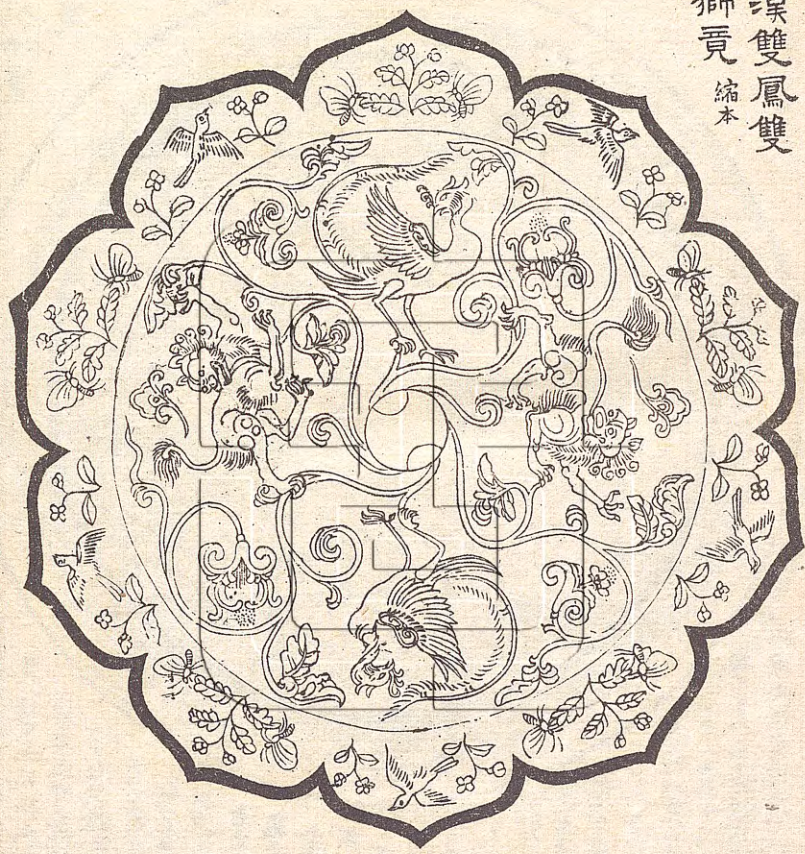 漢雙鳳雙
獅竟 縮本